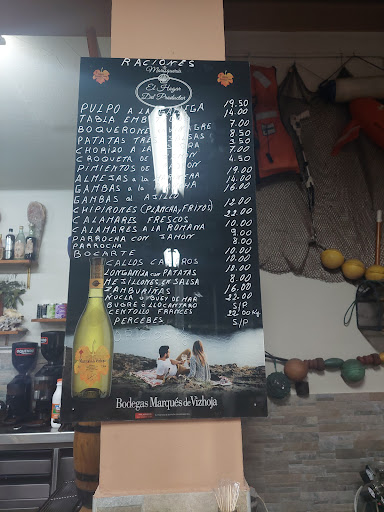 RACIONES
Marisquería
El Hogar
Del Pescador
PULPO A LA 19.50
TABLA 14.00
BOQUERONES 7.00
PATATAS TRES SALSAS 8.50
CHORIZO A LA 3.50
CROQUETA DE 7.00
PIMIENTOS DE 4.50
ALMEJAS a la 19.00
GAMBAS a la 14.00
GAMBAS al AJILLO 16.00
CHIPIRONES (PLANCHA, FRITOS) 12.00
CALAMARES FRESCOS 22.00
CALAMARES A LA ROMANA 10.00
PARROCHA CON JAMON 9.00
PARROCHA 8.00
BOCARTE 10.00
CALLOS CASEROS 10.00
LONGANIZA con PATATAS 18.00
MEJILLONES EN SALSA 8.00
ZAMBURIÑAS 16.00
ÑOCLA o BUEY DE MAR 22.00
BUGRE o LLOCANTARO S/P
CENTOLLO FRANCES 22.00 Kg
PERCEBES S/P
Bodegas Marqués de Vizhoja